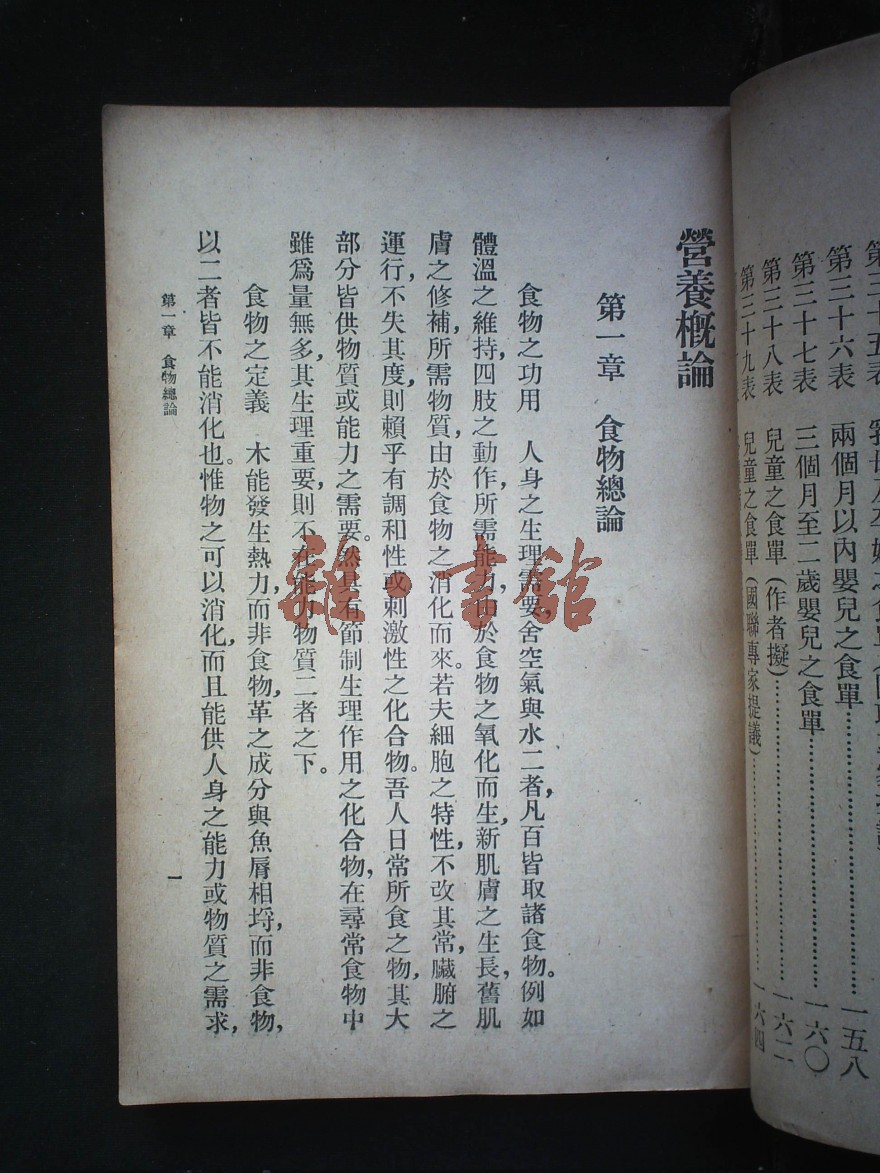 第三十五表
第三十六表　兩個月以內嬰兒之食單……一五八
第三十七表　三個月至二歲嬰兒之食單……一六〇
第三十八表　兒童之食單（作者擬）……一六二
第三十九表　兒童之食單（國聯專家提議）……一六四
營養概論
第一章　食物總論
食物之功用　人身之生理需要，舍空氣與水二者，凡百皆取諸食物。例如
體溫之維持，四肢之動作，所需能力，由於食物之氧化而生，新肌膚之生長，舊肌
膚之修補，所需物質，由於食物之消化而來。若夫細胞之特性，不改其常，臟腑之
運行，不失其度，則賴乎有調和性或刺激性之化合物。吾人日常所食之物，其大
部分皆供物質或能力之需要。然具有節制生理作用之化合物，在尋常食物中
雖爲量無多，其生理重要，則不在能力物質二者之下。
食物之定義　木能發生熱力，而非食物，革之成分與魚脣相埒，而非食物，
以二者皆不能消化也。惟物之可以消化，而且能供人身之能力或物質之需求，
第一章　食物總論
一
雜·書館